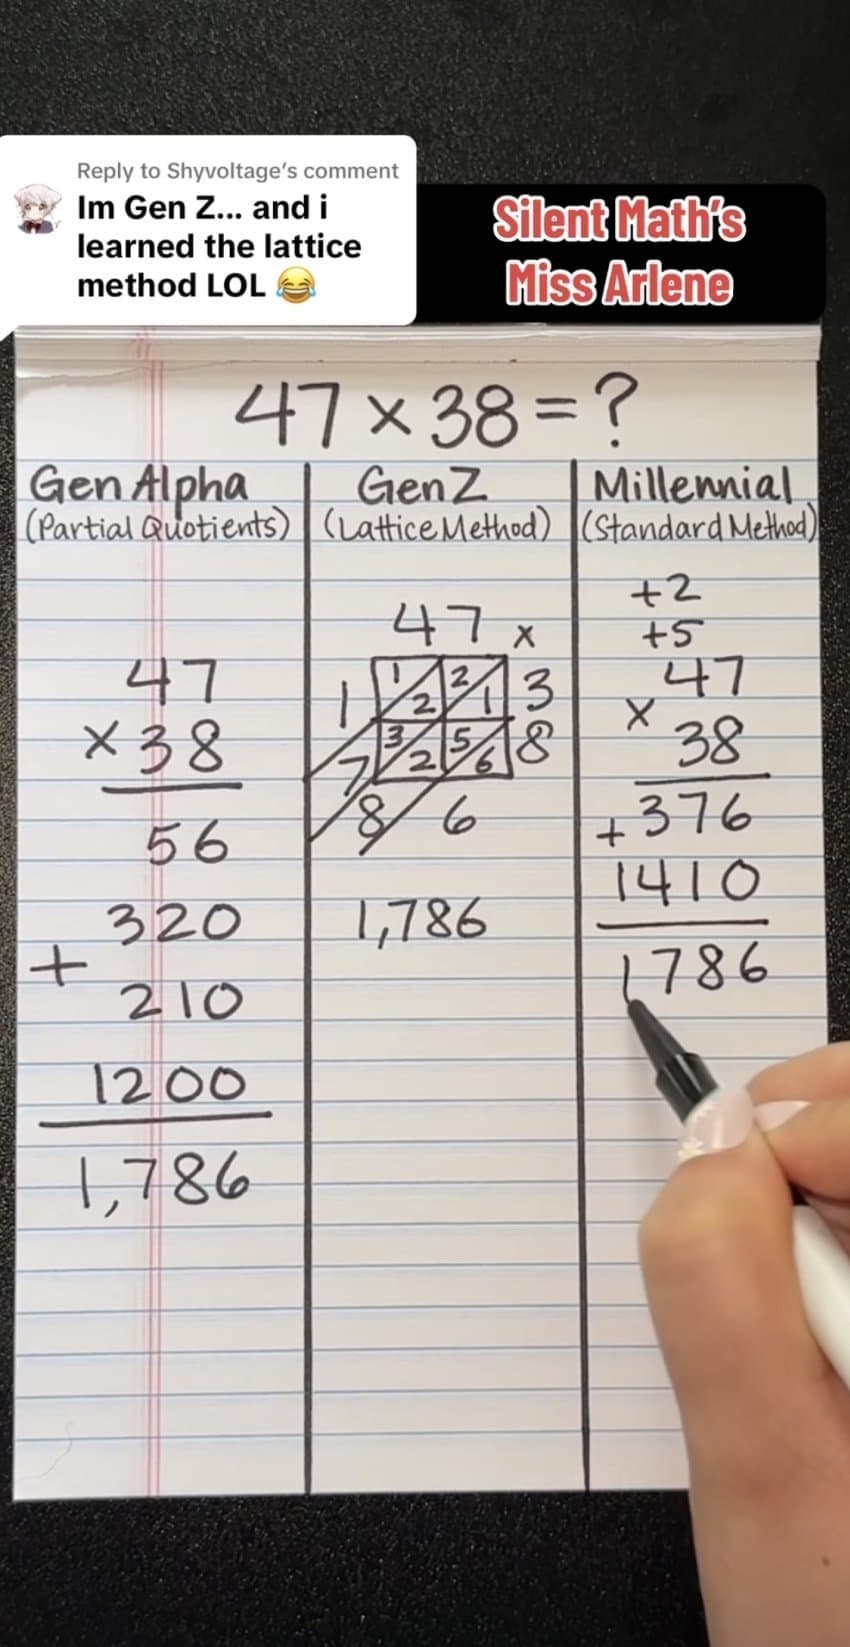 Reply to Shyvoltage's comment
Im Gen Z... and i
learned the lattice
method LOL 😂
Silent Math's
Miss Arlene
47 x 38 = ?
Gen Alpha
(Partial Quotients)
47
× 38
56
320
+
210
1200
1,786
Gen Z
(Lattice Method)
47 x
1 1 2 3
2 1
3 5 8
7 2 6
8 6
1,786
Millennial
(Standard Method)
+2
+5
47
×
38
+ 376
1410
1786